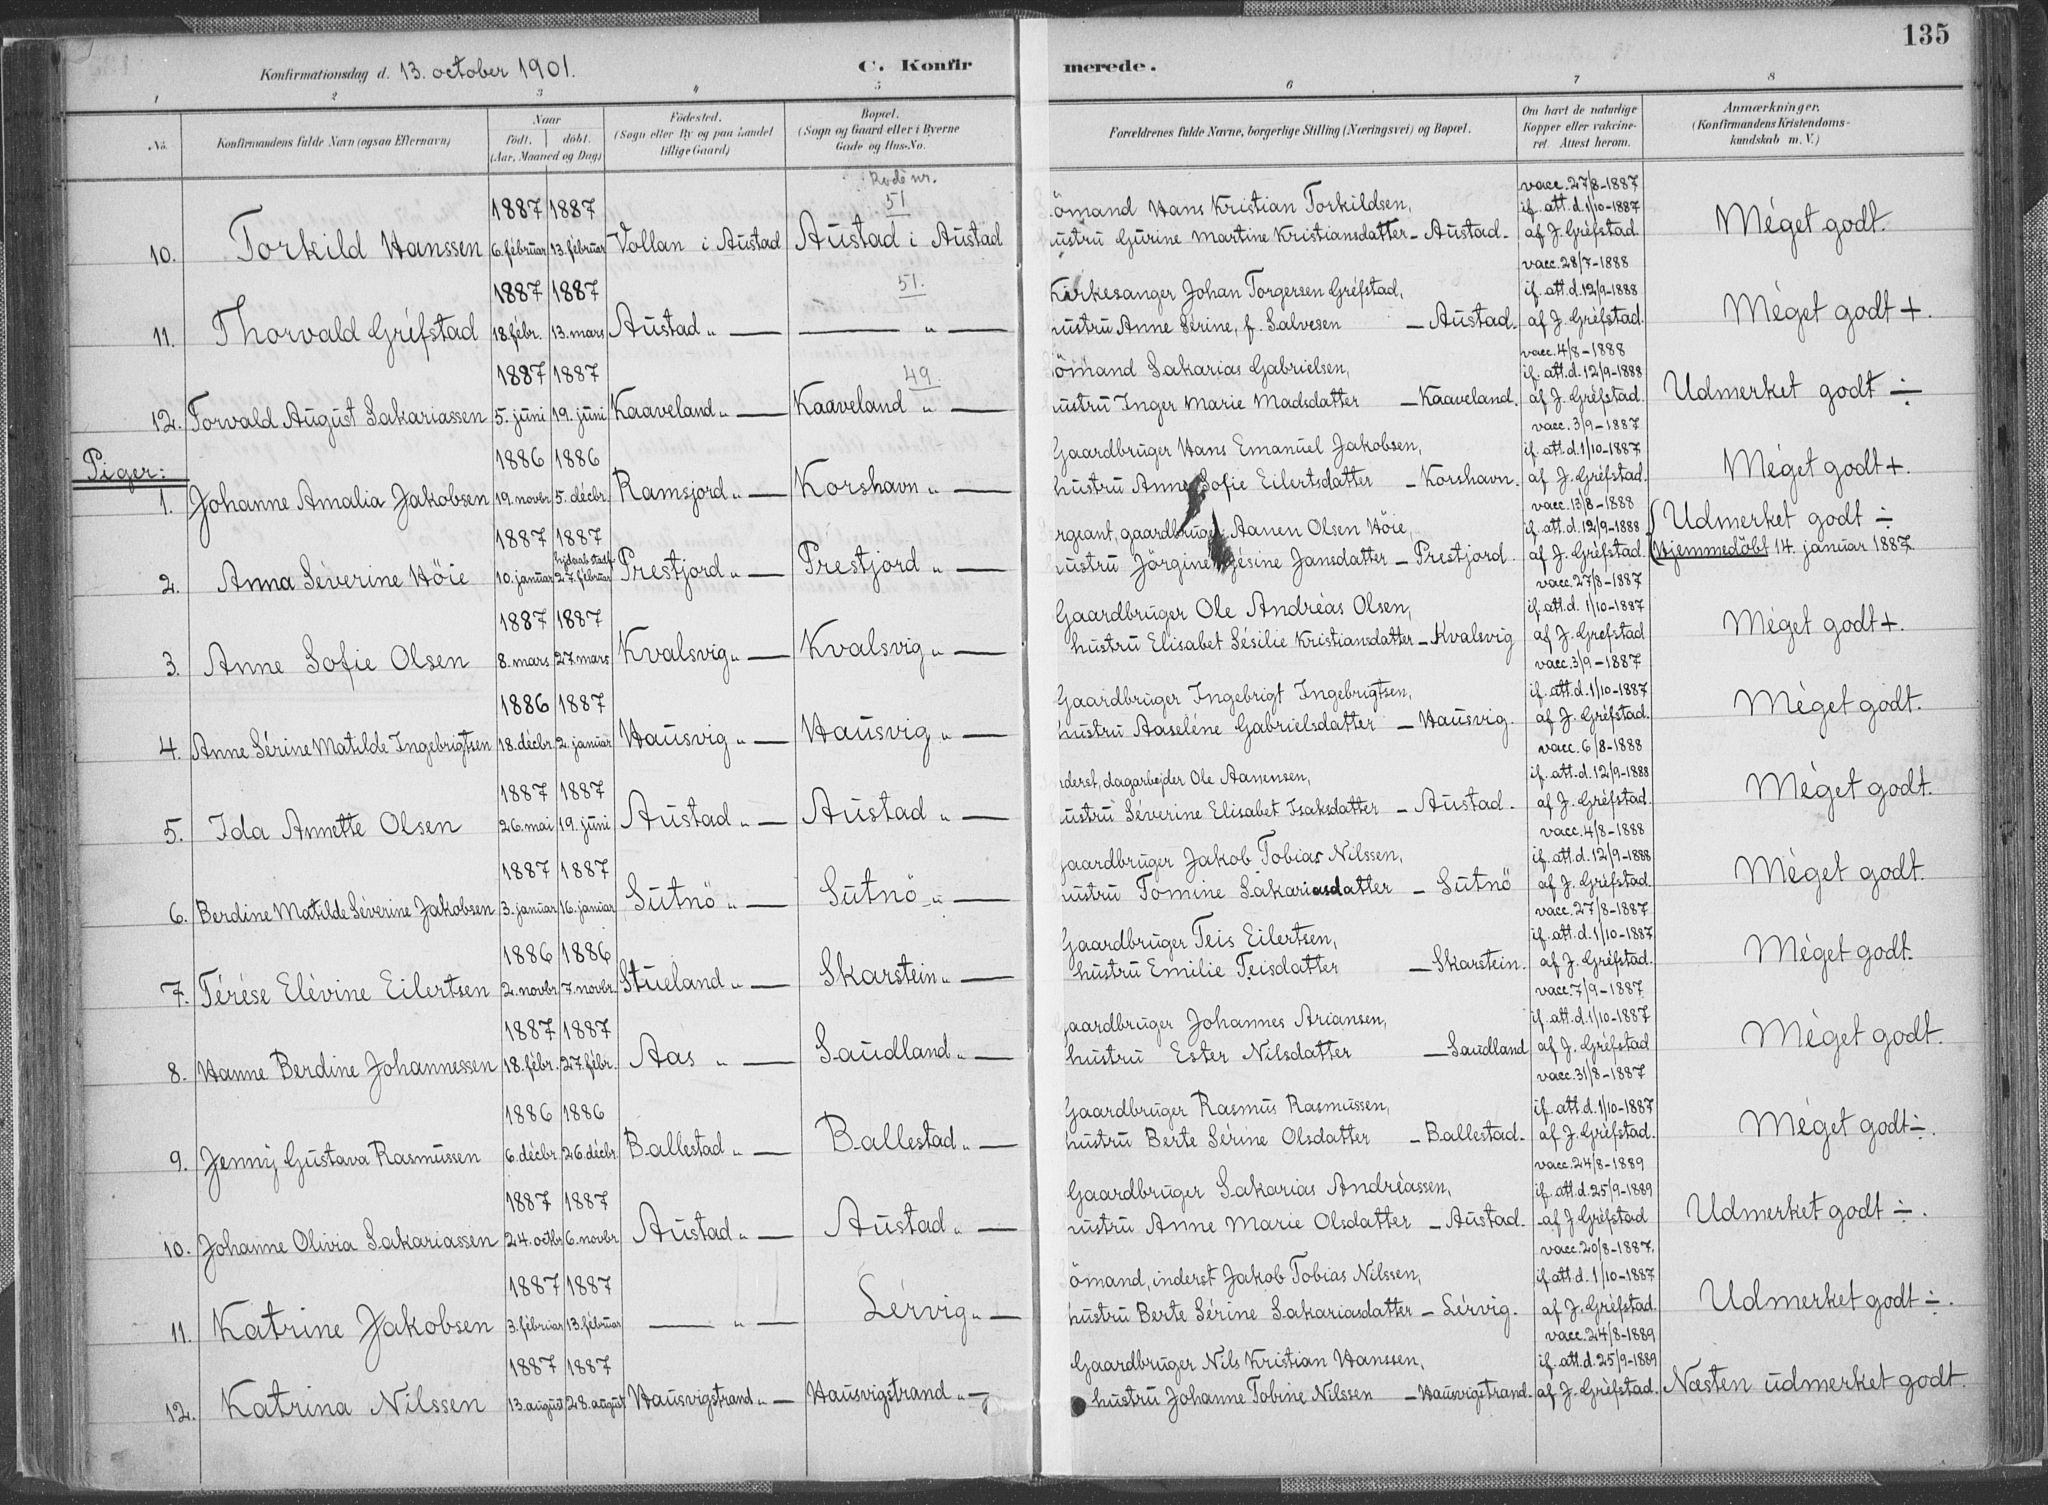 135
Konfirmationsdag d. 13. october 1901. C. Konfirmerede.
1 2 3 4 5 6 7 8
No. Konfirmandens fulde Navn (ogsaa Efternavn) Naar födt. döbt. (Aar, Maaned og Dag) Födested. (Sogn eller By og paa Landet tillige Gaard) Bopæl. (Sogn og Gaard eller i Byerne Gade og Hus-No. Forældrenes fulde Navne, borgerlige Stilling (Næringsvei) og Bopæl. Om havt de naturlige Kopper eller vakcineret. Attest herom. Anmærkninger. (Konfirmandens Kristendomskundskab m. V.)
Rode nr.
1887 1887 51 ömand Hans Kristian Torkildsen, vacc. 27/8-1887 if. att. d. 1/10-1887
10. Torkild Hanssen 6. februar 13. februar Vollan i Austad Austad i Austad ustru Gurine Martine Kristiansdatter - Austad. af J. Gréfstad. Méget godt.
1887 1887 51. Kirkesanger Johan Torgersen Gréfstad, vacc. 28/7-1888 if. att. d. 12/9-1888
11. Thorvald Gréfstad 18. febr. 13. mars Austad " — — " — ustru Anne Sérine, f. Salvesen - Austad. af J. Gréfstad. Méget godt +.
1887 1887 49. ömand Sakarias Gabrielsen, vacc. 4/8-1888 if. att. d. 12/9-1888
12. Torvald August Sakariassen 5. juni 19. juni Kaaveland " — Kaaveland " — ustru Inger Marie Madsdatter - Kaaveland. af J. Gréfstad. Udmerket godt ÷
Piger:
1886 1886 Gaardbruger Hans Emanuel Jakobsen, vacc. 3/9-1887 if. att. d. 1/10-1887
1. Johanne Amalia Jakobsen 19. novbr. 5. décbr. Ramsjord " — Korshavn " — hustru Anne Sofie Eilertsdatter - Korshavn. af J. Gréfstad. Méget godt +.
1887 1887 rgeant, gaardbruger Aanen Olsen Höie, vacc. 13/8-1888 if. att. d. 12/9-1888 Udmerket godt ÷
2. Anna Séverine Höie 10. januar 27. februar Prestjord " — Prestjord " — ustru Jörgine Gésine Jansdatter - Prestjord. af J. Gréfstad. Hjemmedöbt 14. januar 1887.
1887 1887 Gaardbruger Ole Andréas Olsen, vacc. 27/8-1887 if. att. d. 1/10-1887
3. Anne Sofie Olsen 8. mars 27. mars Kvalsvig " — Kvalsvig " — hustru Elisabet Sésilie Kristiansdatter - Kvalsvig af J. Grefstad Méget godt +.
1886 1887 Gaardbruger Ingebrigt Ingebrigtsen, vacc. 3/9-1887 if. att. d. 1/10-1887
4. Anne Sérine Matilde Ingebrigtsen 18. décbr. 2. januar Hausvig " — Hausvig " — hustru Aaseléne Gabrielsdatter - Hausvig. af J. Gréfstad. Méget godt.
1887 1887 nderst, dagarbejder Ole Aanensen, vacc. 6/8-1888 if. att. d. 12/9-1888
5. Ida Annette Olsen 26. mai 19. juni Austad " — Austad " — ustru Séverine Elisabet Isaksdatter - Austad. af J. Gréfstad. Méget godt.
1887 1887 aardbruger Jakob Tobias Nilssen, vacc. 4/8-1888 if. att. d. 12/9-1888
6. Berdine Matilde Séverine Jakobsen 3. januar 16. januar Sutnö " — Sutnö " — ustru Tomine Sakariasdatter - Sutnö af J. Gréfstad. Méget godt.
1886 1886 Gaardbruger Teis Eilertsen, vacc. 27/8-1887 if. att. d. 1/10-1887
7. Térése Elévine Eilertsen 2. novbr. 7. novbr. Stueland " — Skarstein " — hustru Emilie Teisdatter - Skarstein. af J. Gréfstad. Méget godt.
1887 1887 aardbruger Johannes Ariansen, vacc. 7/9-1887 if. att. d. 1/10-1887
8. Hanne Berdine Johannessen 18. fébr. 27. fébr. Aas " — Saudland " — hustru Ester Nilsdatter - Saudland af J. Gréfstad Méget godt.
1886 1886 Gaardbruger Rasmus Rasmussen, vacc. 31/8-1887 if. att. d. 1/10-1887
9. Jenny Gustava Rasmussen 6. décbr. 26. décbr. Ballestad " — Ballestad " — hustru Berte Sérine Olsdatter - Ballestad. af J. Gréfstad. Méget godt ÷.
1887 1887 Gaardbruger Sakarias Andréassen, vacc. 24/8-1889 if. att. d. 25/9-1889
10. Johanne Olivia Sakariassen 24. octbr. 6. novbr. Austad " — Austad " — ustru Anne Marie Olsdatter - Austad. af J. Gréfstad Udmerket godt ÷.
1887 1887 ömand, inderst Jakob Tobias Nilssen, vacc. 20/8-1887. if. att. d. 1/10-1887
11. Katrine Jakobsen 3. februar 13. februar — " — Lérvig " — hustru Berte Sérine Sakariasdatter - Lérvig. af J. Gréfstad. Udmerket godt ÷.
1887 1887 Gaardbruger Nils Kristian Hanssen, vacc. 24/8-1889 if. att. d. 25/9-1889
12. Katrina Nilssen 13. august 28. august Hausvigstrand " — Hausvigstrand " — hustru Johanne Tobine Nilssen - Hausvigstrand. af J. Gréfstad. Næsten udmerket godt.